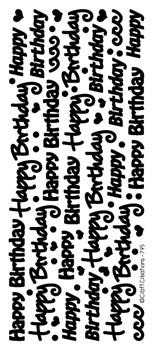 Happy
Birthday
Happy Birthday
Happy Birthday
Happy
Birthday
Happy
Birthday
Happy Birthday
Happy Birthday
Happy Birthday
Happy Birthday
Happy Birthday
Happy
Birthday
Happy Birthday
Happy Birthday
Happy
Birthday
Happy Birthday
©Craft Creations - 795